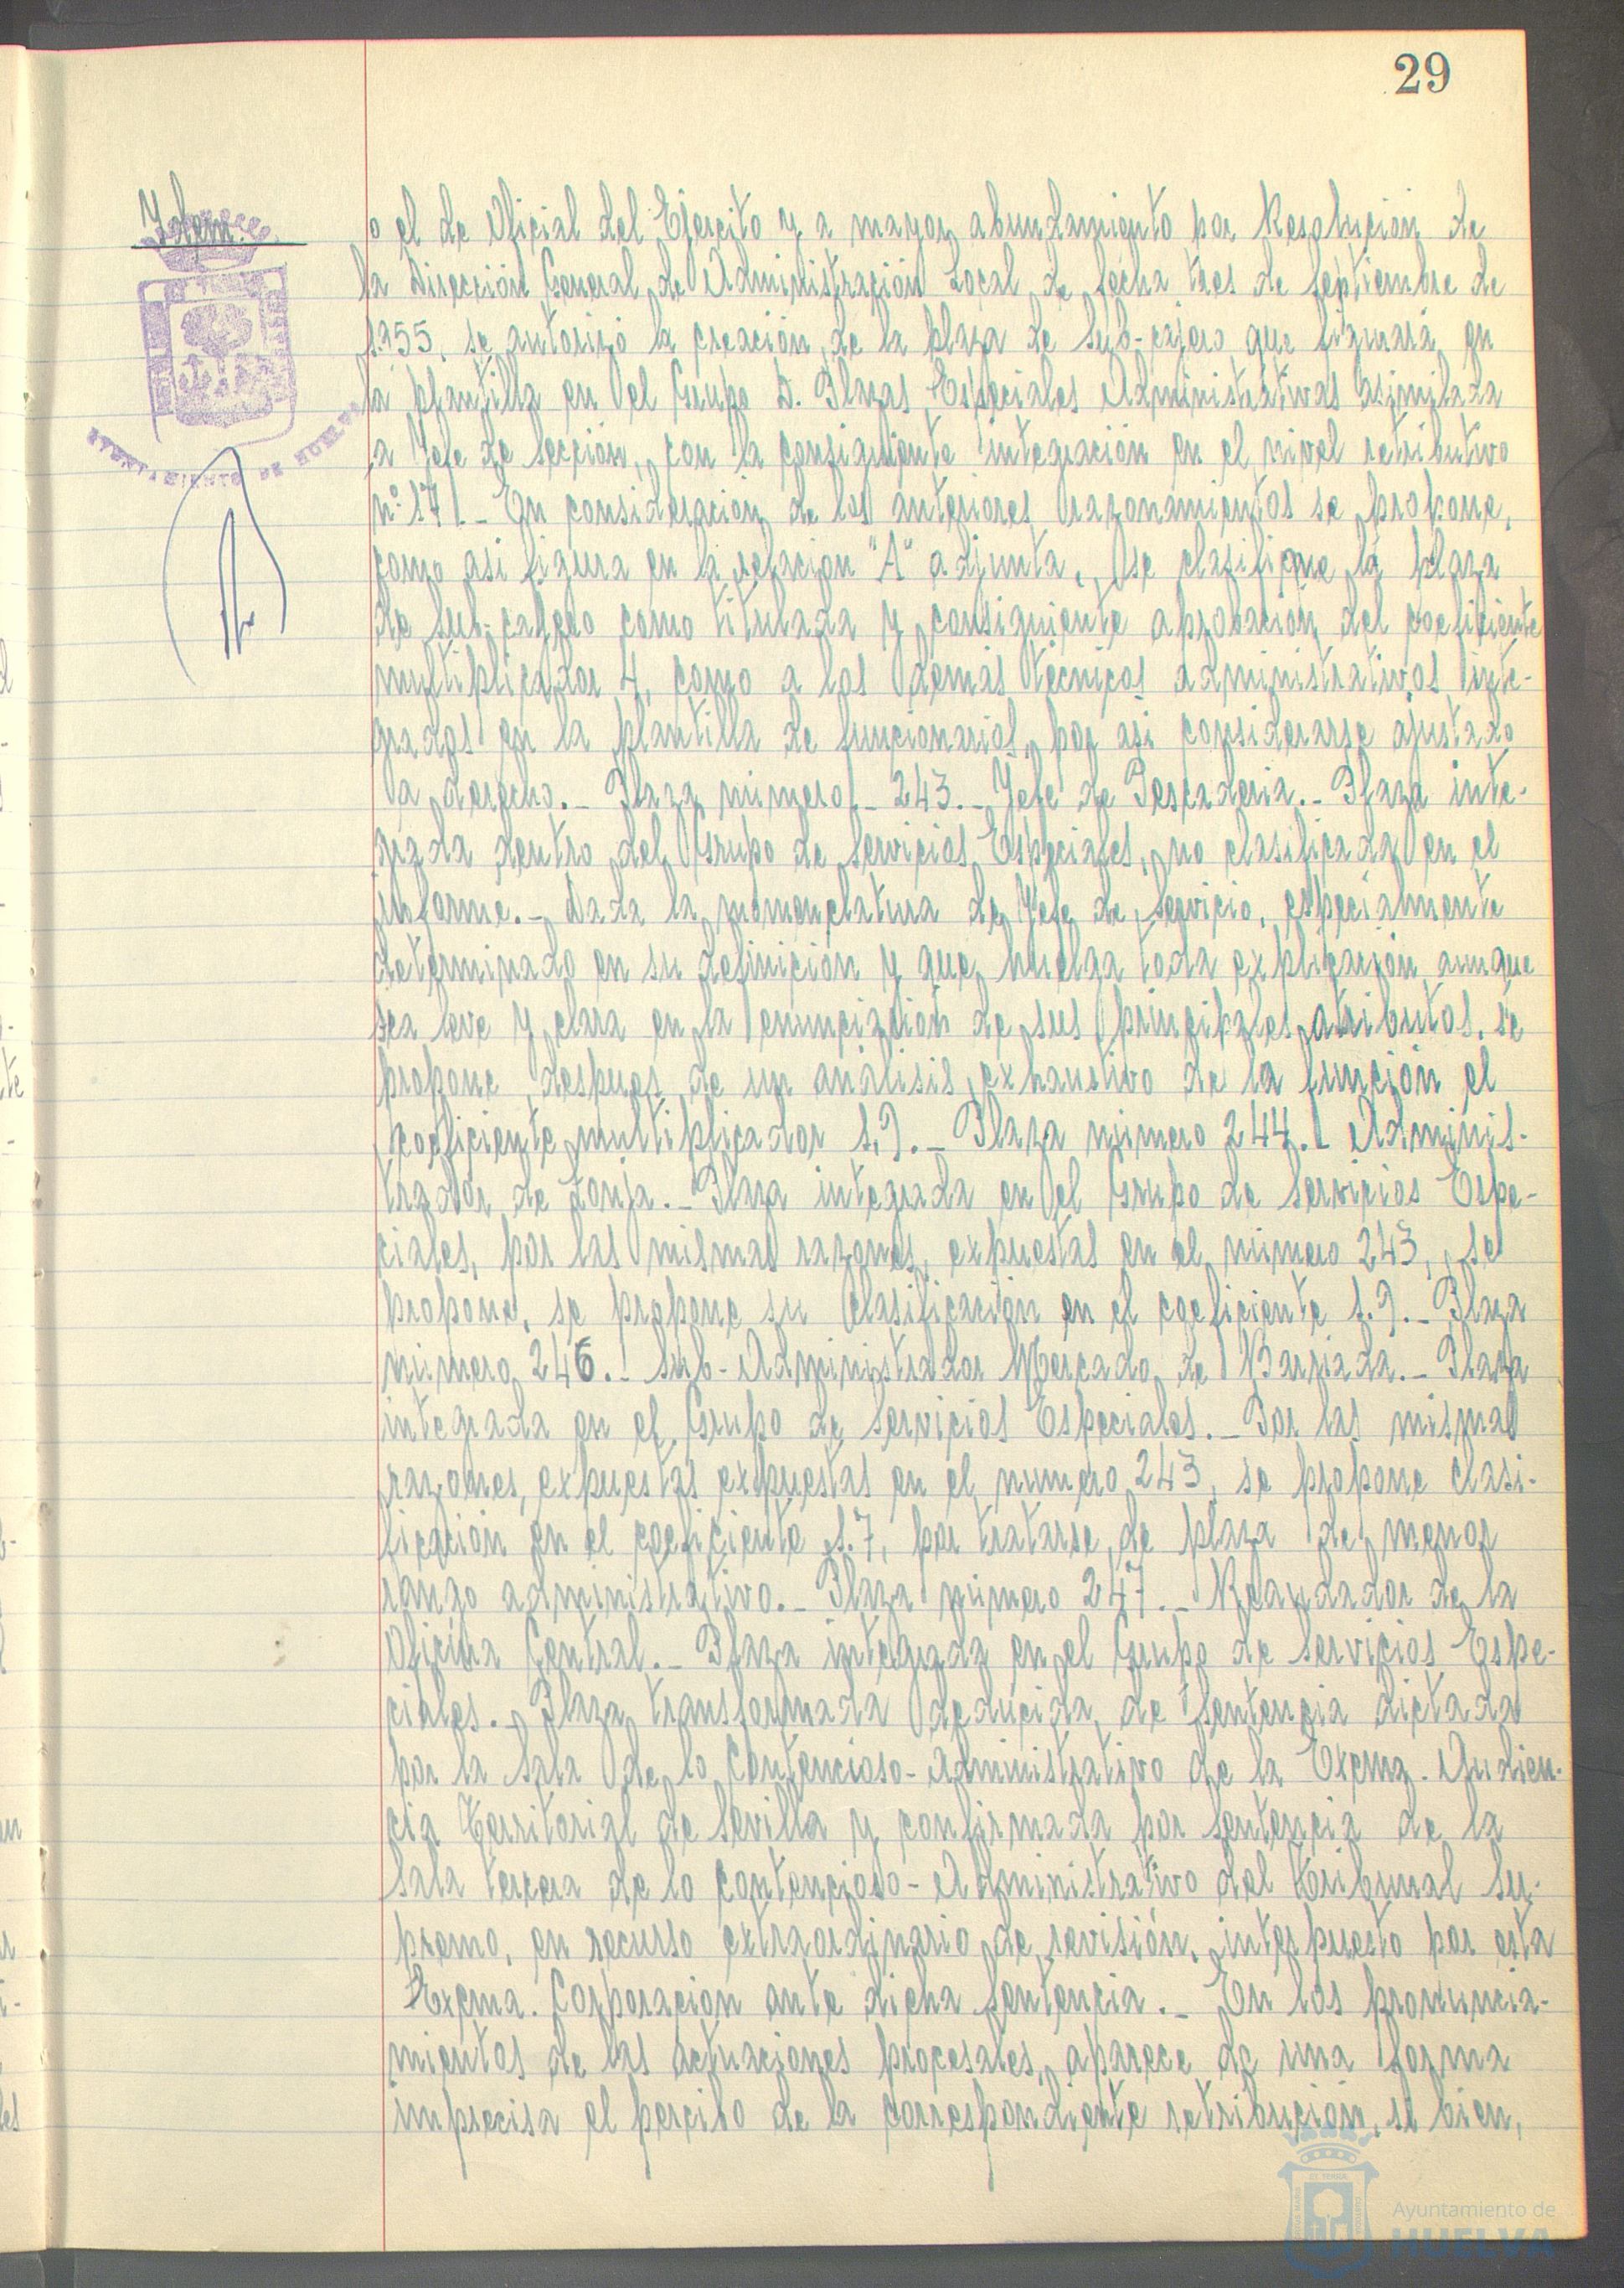 29
Idem.
o el de Oficial del Ejercito y a mayor abundamiento por Resolución de
la Dirección General de Administración Local de fecha tres de Septiembre de
1.955, se autorizó la creación de la plaza de Sub-cajero que figurará en
la plantilla en el Grupo D. Plazas Especiales Administrativas asimilada
a Jefe de Sección, con la consiguiente integración en el nivel retributivo
nº 17.- En consideración de los anteriores razonamientos se propone,
como asi figura en la relación "A" adjunta, se clasifique la plaza
de Sub-cajero como titulada y consiguiente aprobación del coeficiente
multiplicador 4, como a los demás técnicos administrativos inte-
grados en la plantilla de funcionarios, por asi considerarse ajustado
a derecho.- Plaza número - 243.- Jefe de Pescaderia.- Plaza inte-
grada dentro del Grupo de Servicios Especiales, no clasificada en el
informe.- Dada la nomenclatura de Jefe de Servicio, especialmente
determinado en su definición y que huelga toda explicación aunque
sea leve y clara en la enunciación de sus principales atributos, se
propone, despues de un análisis exhaustivo de la función el
coeficiente multiplicador 1,9.- Plaza número 244.- Adminis-
trador de Lonja.- Plaza integrada en el Grupo de Servicios Espe-
ciales, por las mismas razones, expuestas en el número 243, se
propone, se propone su clasificación en el coeficiente 1.9.- Plaza
número 246.- Sub-Administrador Mercado de Barriada.- Plaza
integrada en el Grupo de Servicios Especiales.- Por las mismas
razones, expuestas expuestas en el número 243, se propone clasi-
ficación en el coeficiente 1.7, por tratarse de plaza de menor
rango administrativo.- Plaza número 247.- Recaudador de la
Oficina Central.- Plaza integrada en el Grupo de Servicios Espe-
ciales.- Plaza transformada deducida de Sentencia dictada
por la Sala de lo Contencioso-Administrativo de la Excma. Audien-
cia Territorial de Sevilla y confirmada por Sentencia de la
Sala tercera de lo Contencioso-Administrativo del Tribunal Su-
premo, en recurso extraordinario de revisión, interpuesto por esta
Excma. Corporación ante dicha Sentencia.- En los pronuncia-
mientos de las actuaciones procesales, aparece de una forma
imprecisa el percibo de la correspondiente retribución, si bien,
AYUNTAMIENTO DE HUELVA
Ayuntamiento de
HUELVA